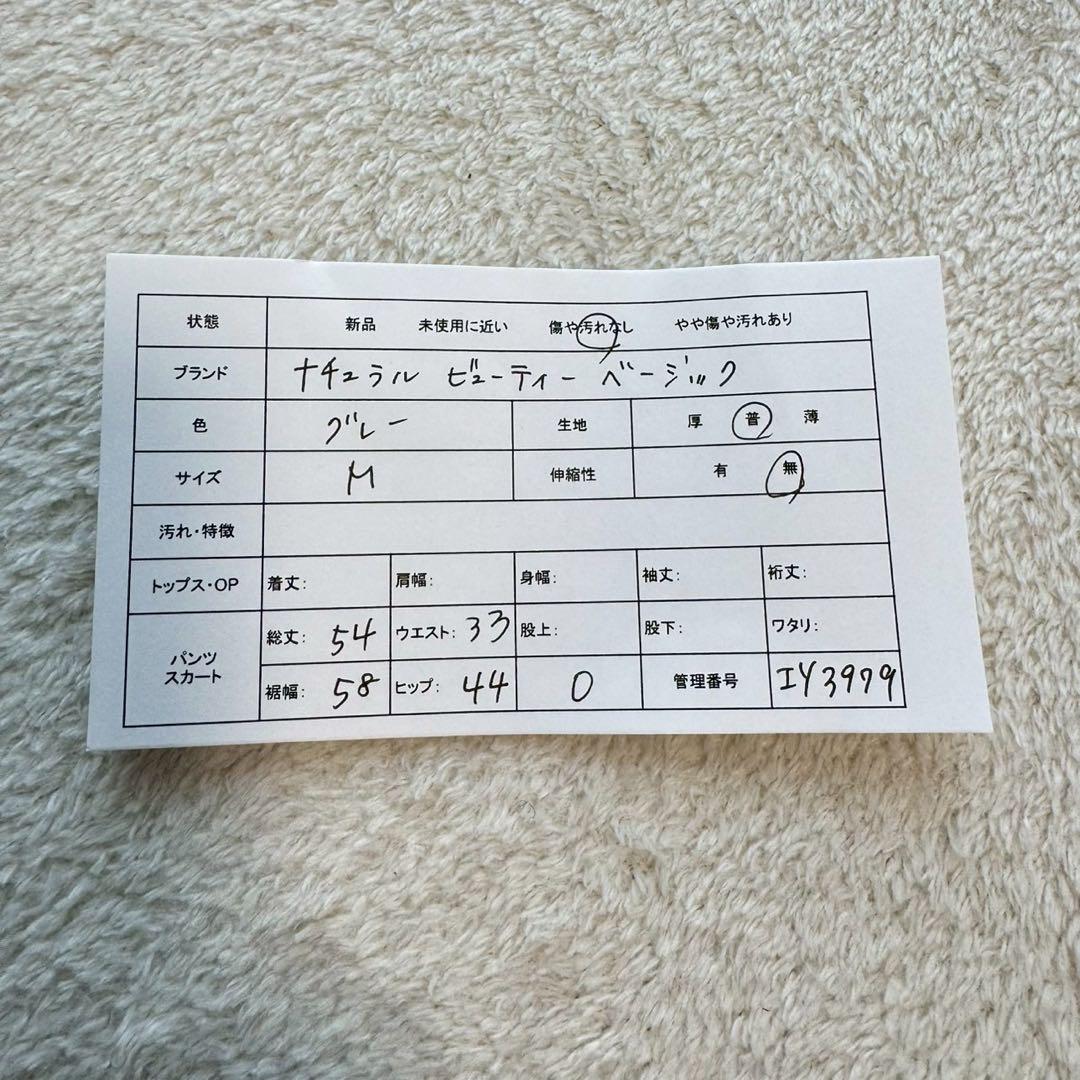 状態 新品 未使用に近い 傷や汚れなし やや傷や汚れあり
ブランド ナチュラル ビューティー ベージック
色 グレー 生地 厚 普 薄
サイズ M 伸縮性 有 無
汚れ・特徴
トップス・OP 着丈: 肩幅: 身幅: 袖丈: 裄丈:
パンツ スカート
総丈: 54 ウエスト: 33 股上: 股下: ワタリ:
裾幅: 58 ヒップ: 44 0 管理番号 IY3979